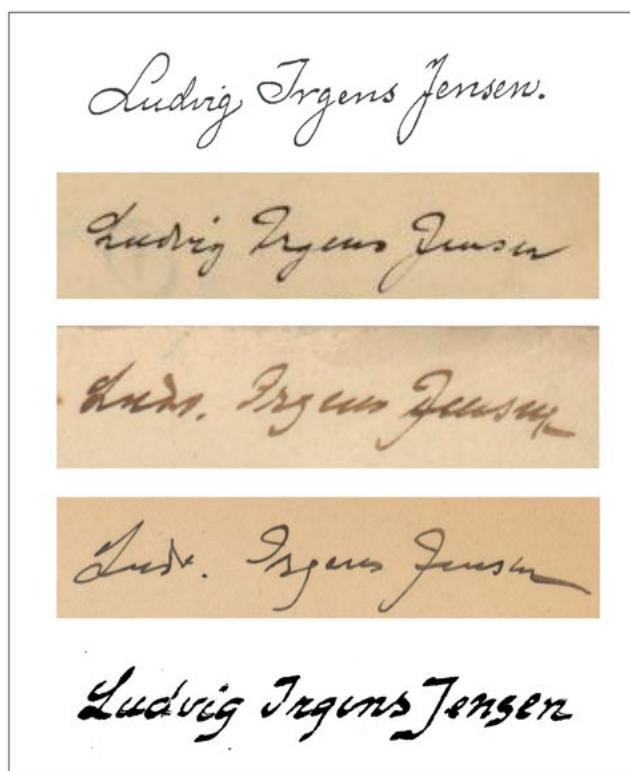 Ludvig Irgens Jensen.
Ludvig Irgens Jensen
Ludv. Irgens Jensen
Ludv. Irgens Jensen
Ludvig Irgens Jensen